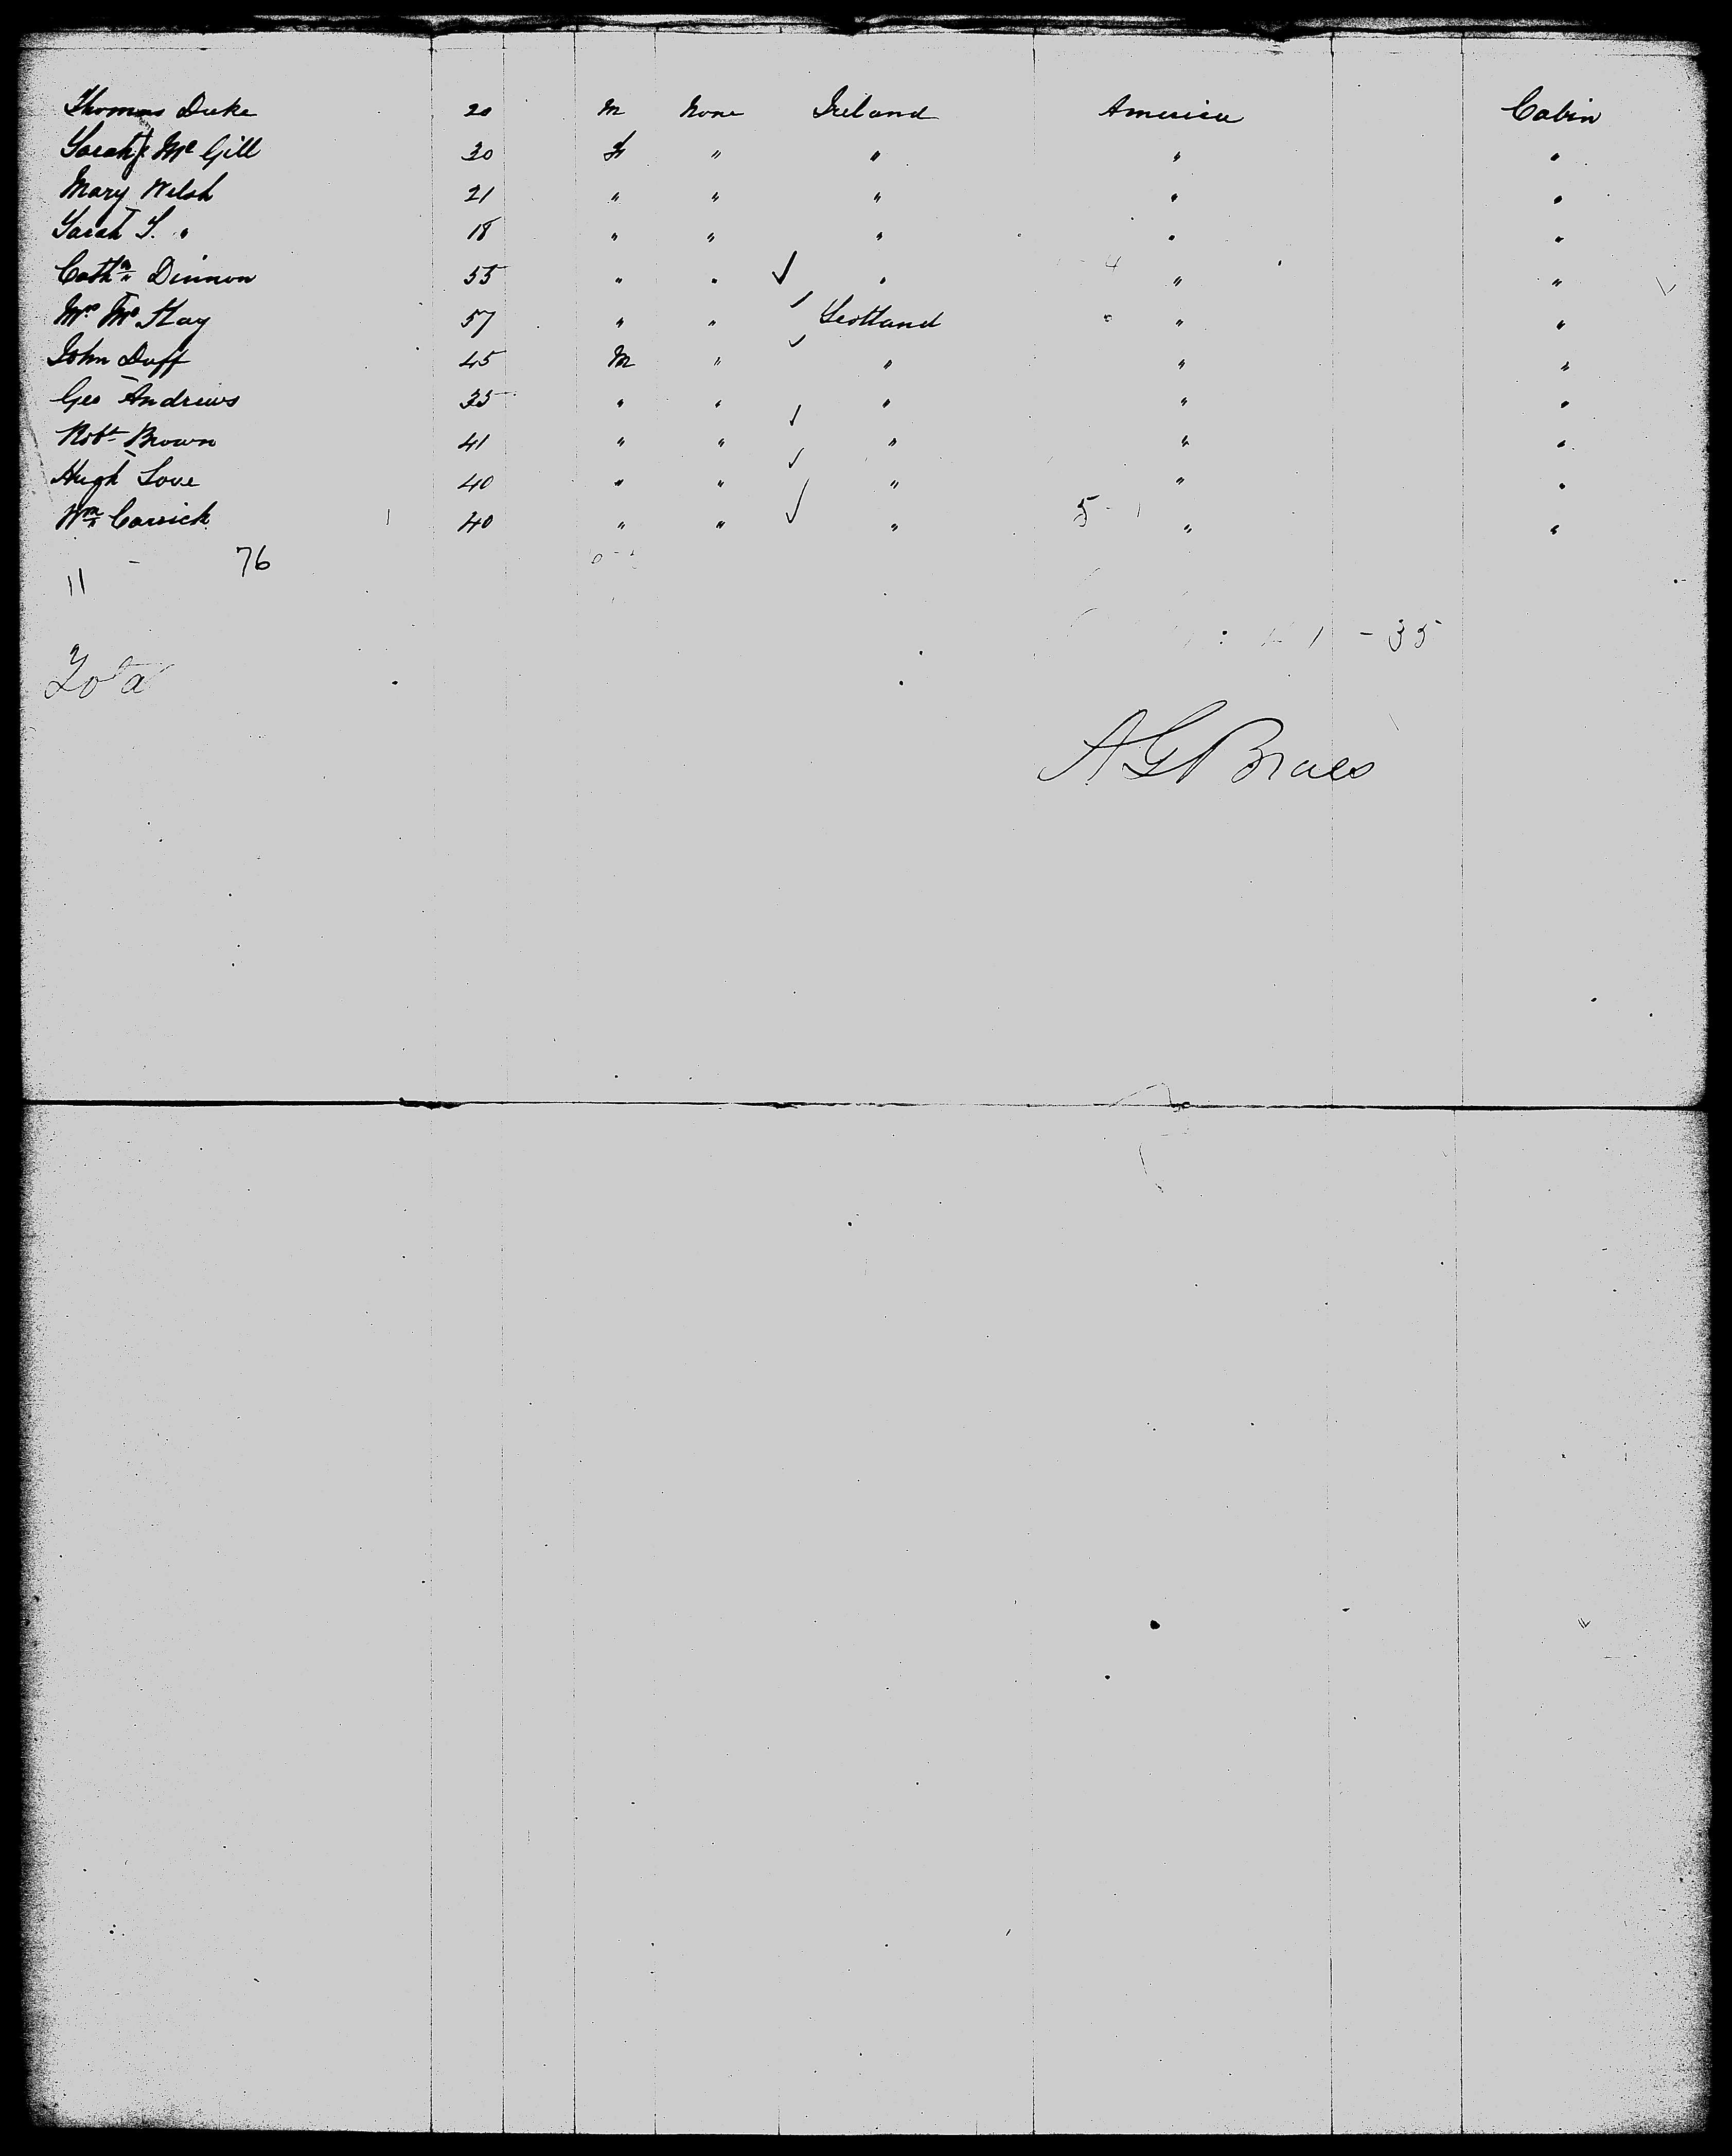 Thomas Duke 20 M None Ireland America Cabin
Sarah Mc Gill 30 F " " " "
Mary Welsh 21 " " " " "
Sarah S. " 18 " " " " "
Cathn Dinnon 55 " " " " "
Mrs Mc Kay 57 " " Scotland " "
John Duff 45 M " " " "
Geo Andrews 35 " " " " "
Robt Brown 41 " " " " "
Hugh Love 40 " " " " "
Wm Carrick 40 " " " " "
76
11
- 35
A G Braes